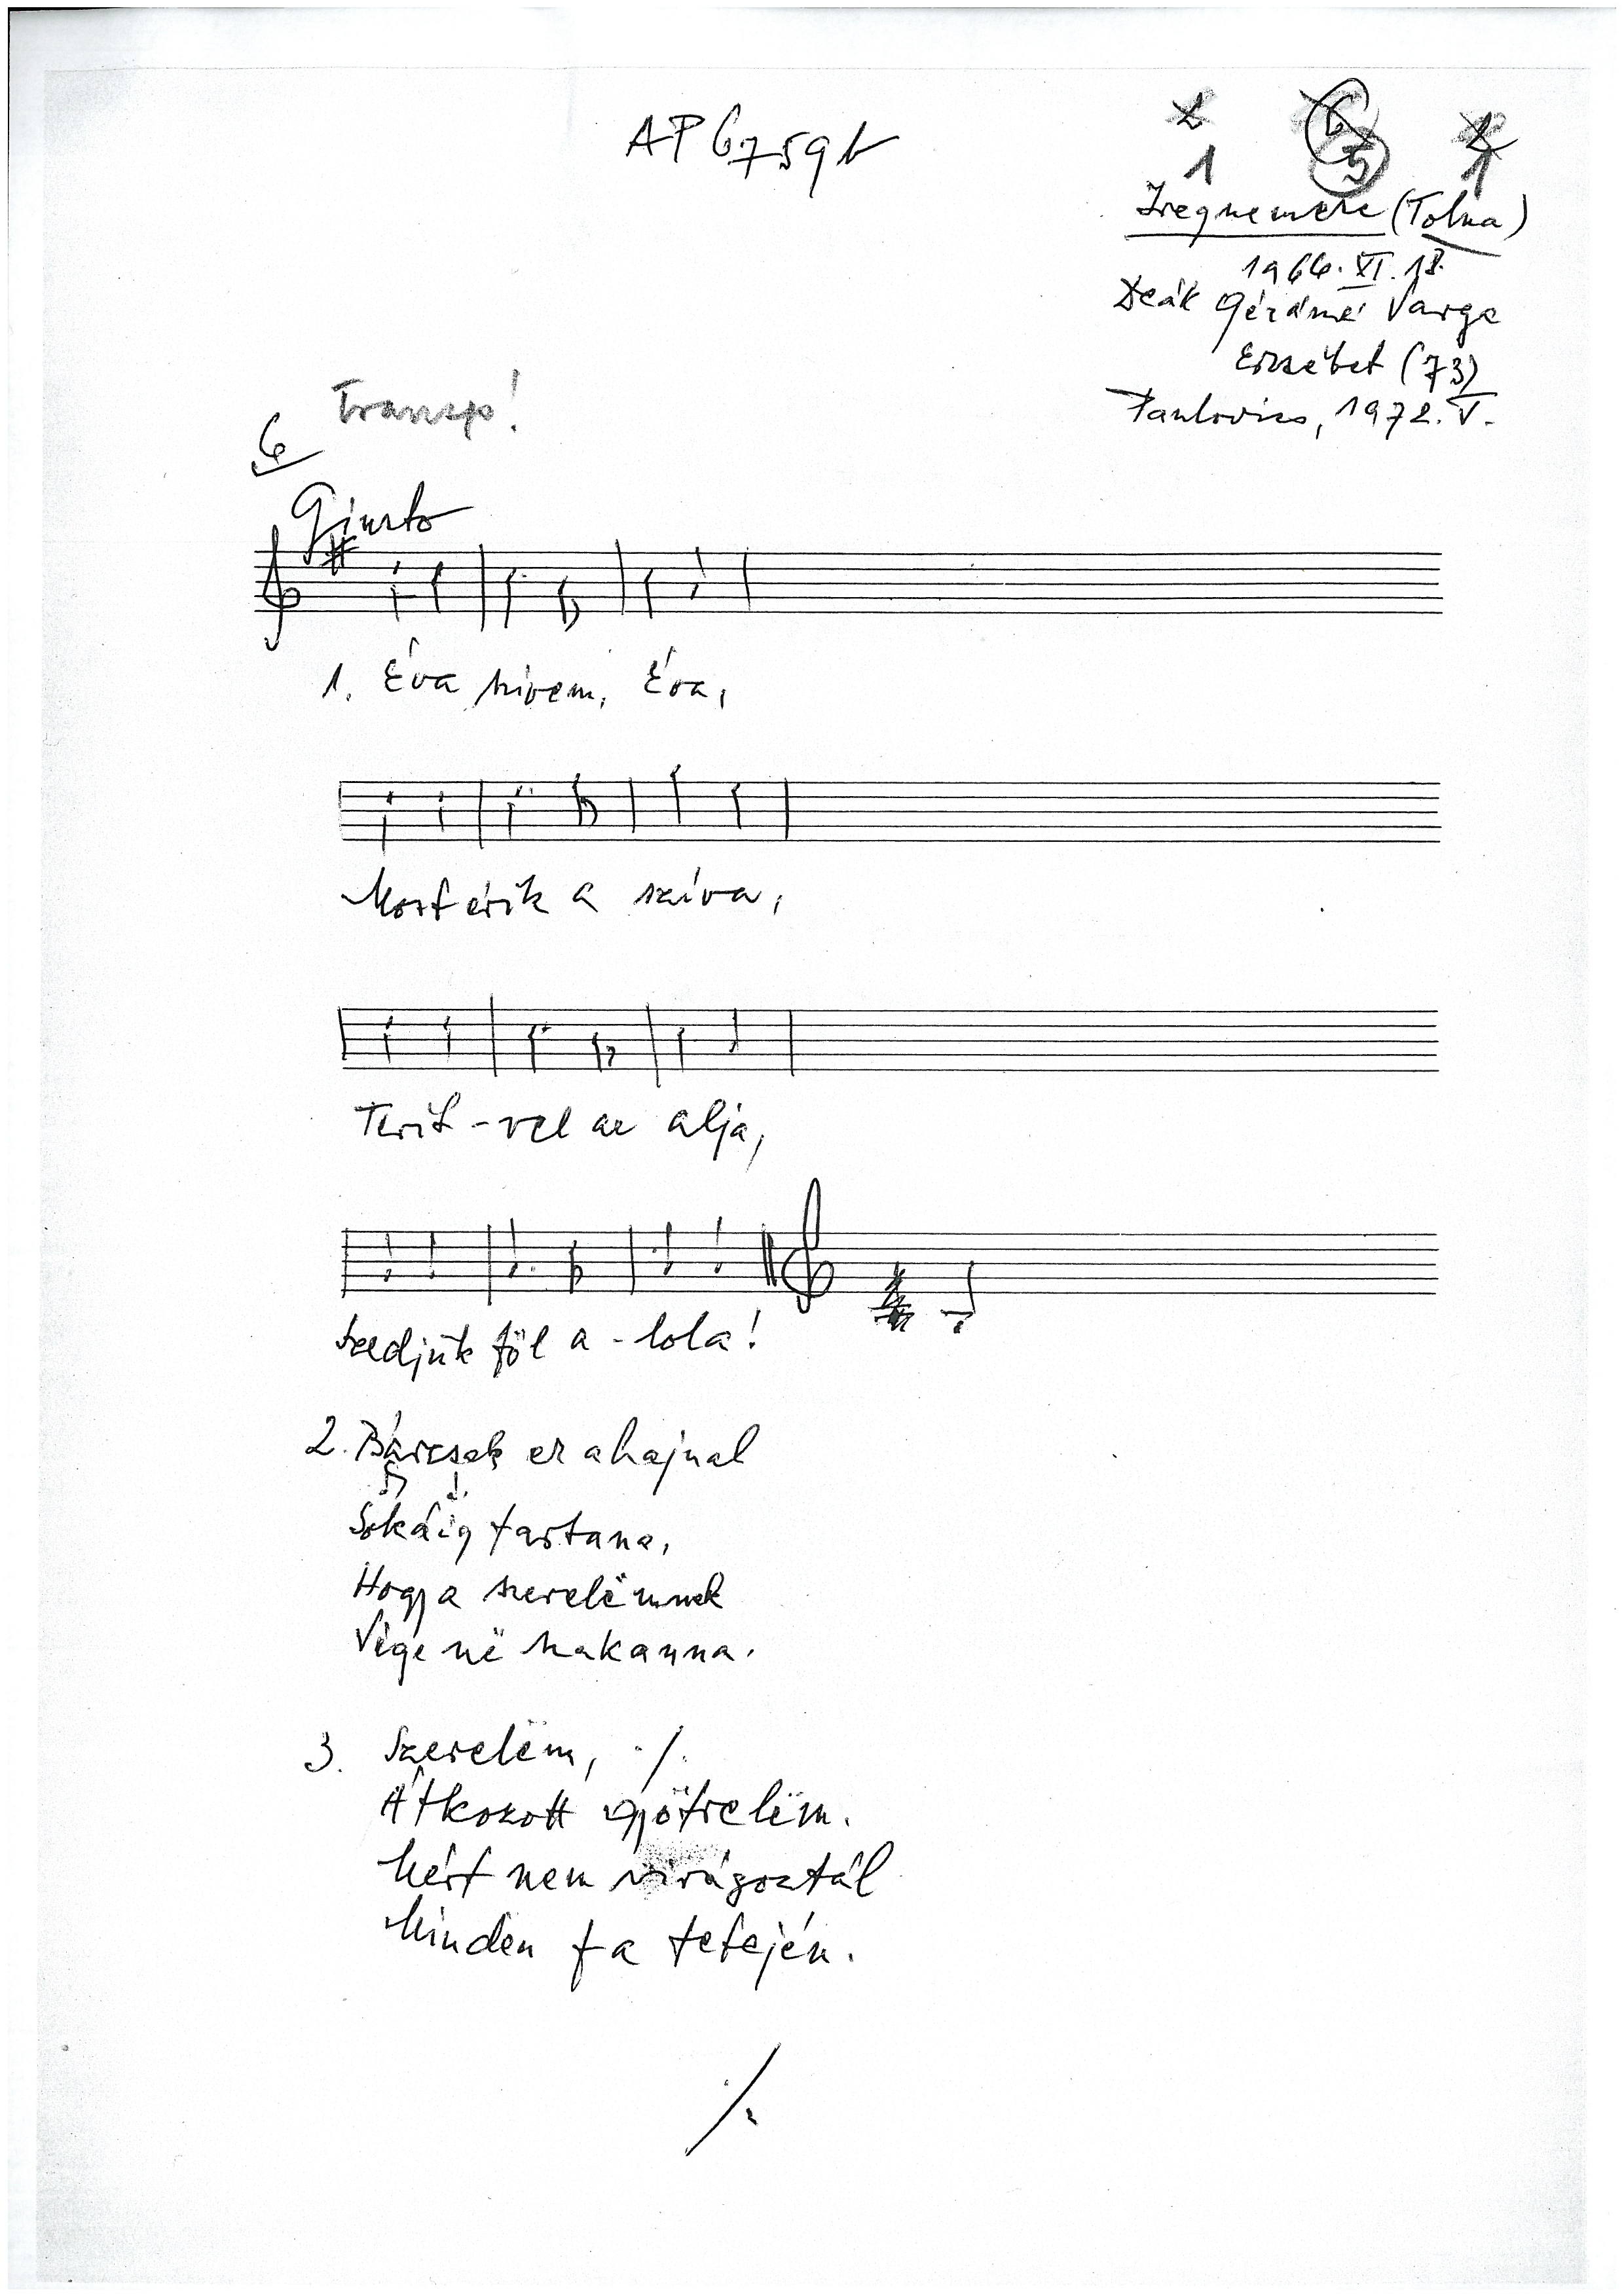 AP 6759b
1 5 1
Iregszemcse (Tolna)
1966. XI. 18.
Deák Gézáné Varga
Erzsébet (73)
Paulovics, 1972. V.
Transzp!
6
Giusto
1. Éva szívem, Éva,
Most érik a szíva,
Terít-vel az alja,
szedjük föl a-lola!
2. Bárcsak ez a hajnal
Sokáig tartana,
Hogy a szerelëmnek
Vége në szakanna.
3. Szerelëm, ./.
Átkozott gyötrelëm.
Mért nem virágoztál
Minden fa tetején.
./.